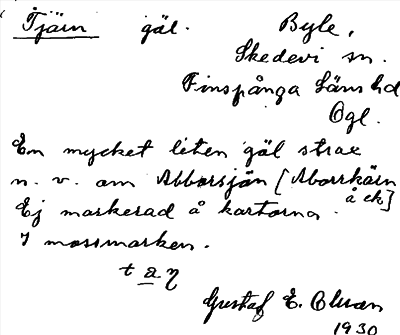 Tjärn gäl. Byle,
Skedevi sn.
Finspånga läns hd
Ögl.
En mycket liten gäl strax
n. v. om Abborsjön [Aborrkärn
å ek]
Ej markerad å kartorna.
I mossmarken.
Gustaf E. Olsson
1930